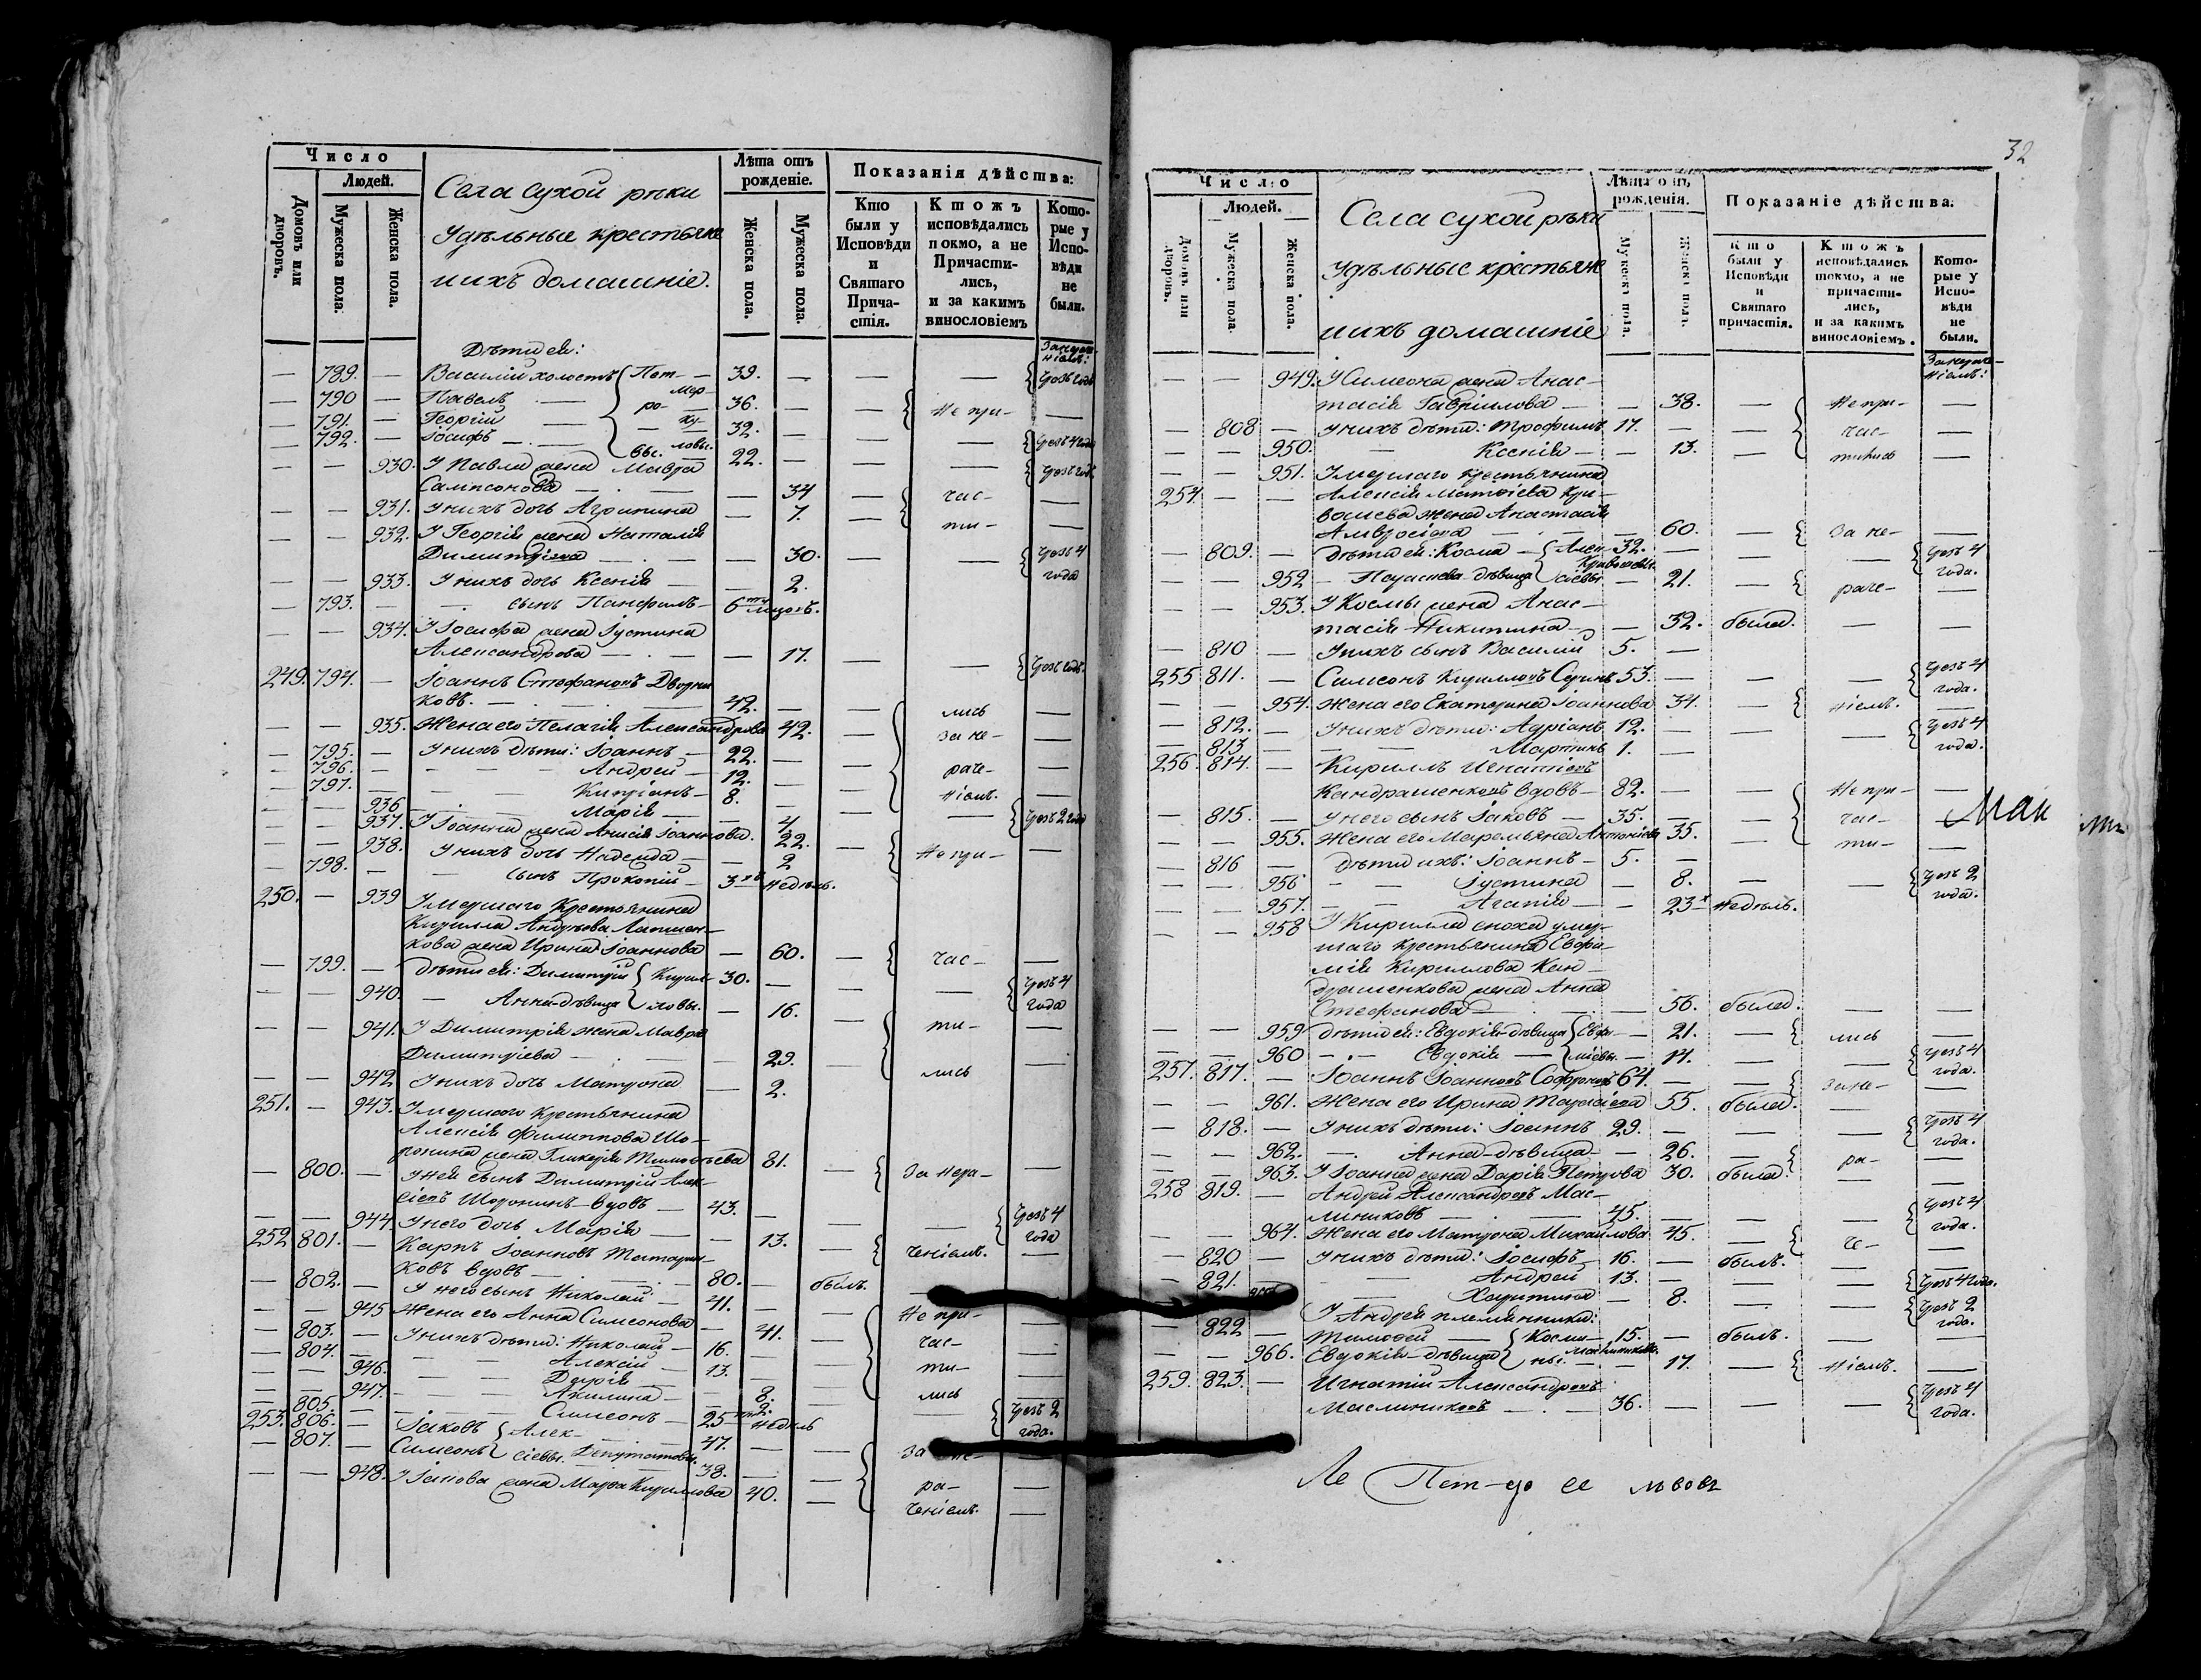 Число
Людей.
Домовъ или дворовъ.
Мужеска пола.
Женска пола.
Села сухой рѣки
Удѣльные крестьяне
иихъ домашніе.
Лѣта отъ рожденіе.
Женска пола.
Мужеска пола.
Показанія дѣйства:
Кто были у Исповѣди и Святаго Причастія.
Ктожъ исповѣдались покмо, а не Причастились, и за какимъ винословіемъ
Которые у Исповѣди не были.
Дѣти ея:
— 789. — Василій холостъ 39. — —
— 790 — Павелъ — 36. — — Не при- —
— 791. — Георгій — 32. — —
— 792. — Іосифъ — 22. — —
— — 930. У Павла жена Мавра
Сампсонова — — 34 — час- —
— — 931. Унихъ дочь Агрипина — 7. —
— — 932. У Георгія жена Наталія ти- —
Димитріева — 30. — — Чрезъ 4 года
— — 933. Унихъ дочь Ксенія — 2.
— 793. — сынъ Панфилъ — 6
— — 934. У Іосифа жена Іустина
Александрова — — 17. — —
249. 794. — Іоаннъ Стефановъ Дворни
ковъ. — 42. — лись —
— — 935. Жена его Пелагія Александрова 42. — за не- —
— 795. — Унихъ дѣти: Іоаннъ — 22. —
— 796. — Андрей — 12. — раче- —
— 797. — Кипріанъ — 8. — ніемъ. —
— — 936 Марія — 4
— — 937. У Іоанна жена Анисія Іоаннова. 22. — — Чрезъ 2 года
— — 938. Унихъ дочь Надежда — 2 Не при- —
— 798. — сынъ Прокопій — 3 недѣль.
250. — 939 Умершаго Крестьянина
Кирилла Андреева Лапшен-
кова жена Ирина Іоаннова — 60. — час- —
— 799. — дѣти ея: Димитрій Кирил- 30. — — Чрезъ 4
— — 940. — Анна-дѣвица ловы. — 16. года
— — 941. У Димитрія жена Мавра ти- —
Димитріева — — 29. —
— — 942 Унихъ дочь Матрона — 2. лись
251. — 943. Умершаго Крестьянина
Алексія Филиппова Шо-
ронина жена Гликерія Тимофеева 81. — За нера- —
— 800. — Уней сынъ Димитрій Алек-
сіевъ Шоронинъ-вдовъ — 43. — — Чрезъ 4
— — 944. Унего дочь Марія — 13. — года
252 801. — Карпъ Іоанновъ Татарин- ченіемъ. —
ковъ вдовъ — 80. — былъ. —
— 802. — У него сынъ Николай — 41. —
— — 945 Жена его Анна Симеонова — 41. — Не при- —
— 803. — Унихъ дѣти: Николай — 16. час- —
— 804. — Алексій — 13. ти-
— — 946. Дарія — 8. —
— — 947. Акилина — 2. лись —
— 805. — Симеонъ — 25 недѣль — Чрезъ 2
253. 806. — Іаковъ Алек- 47. — года.
— 807. — Симеонъ сіевы. Депутатовы. 38. — За не-
— — 948. У Іакова жена Марѳа Кириллова 40. — ра- —
ченіемъ. —
32
Число
Людей.
Домовъ или дворовъ.
Мужеска пола.
Женска пола.
Села сухой рѣки
удѣльные крестьяне
иихъ домашніе
Лѣта отъ рожденія.
Мужеска пола.
Женска пола.
Показаніе дѣйства:
Кто были у Исповѣди и Святаго причастія.
Ктожъ исповѣдались токмо, а не причастились, и за какимъ винословіемъ.
Которые у Исповѣди не были.
— — 949. У Симеона жена Анас-
тасія Гавріилова — — 38. — Не при- —
— 808 — Унихъ дѣти: Трофимъ 17. — — час- —
— — 950. — Ксенія — — 13. —
— — 951. Умершаго Крестьянина
254. — — Алексія Матѳіева Кри-
вошеева жена Анастасія
Амвросіева — — 60. — За не- —
— 809. — Дѣти ея: Косма — Алек- 32. — — Чрезъ 4
— — 952 — дѣвица сіевы — 21. — раче- года.
— — 953. У Космы жена Анас-
тасія Никитина — — 32. была. — —
— 810 — Унихъ сынъ Василій 5. —
255 811. — Симеонъ Кирилловъ 53. — — — Чрезъ 4 года.
— — 954. Жена его Екатерина Іоаннова 34. — ніемъ. —
— 812. — Унихъ дѣти: Адріанъ 12. — — — Чрезъ 4 года.
— 813 — — Мартинъ 1. —
256. 814. — Кириллъ Игнатіевъ
Кандрашенковъ вдовъ — 82. — — Не при- —
— 815. — Унего сынъ Іаковъ — 35. — — час- —
— — 955. Жена его Маремьяна Антоніева 35. — ти- —
— 816 — дѣти ихъ: Іоаннъ — 5. —
— — 956 — — Іустина — 8. — — Чрезъ 2 года.
— — 957. — — Агапія — — 23 недѣль.
— — 958 У Кирилла сноха умер-
шаго крестьянина Евфи-
мія Кириллова Кан-
драшенкова жена Анна
Стефанова — — 56. была. — —
— — 959 дѣти ея: Евдокія-дѣвица Евфи- — 21. — лись —
— — 960 — — Евдокія — міевы. — 14. — — Чрезъ 4 года.
257. 817. — Іоаннъ Іоанновъ Софроновъ 64. — — За не- —
— — 961. Жена его Ирина Тарасіева 55. была. —
— 818. — Унихъ дѣти: Іоаннъ 29. — — — Чрезъ 4 года.
— — 962. — Анна-дѣвица — 26. — ра- —
— — 963. У Іоанна жена Дарія Петрова 30. была. — —
258 819. — Андрей Александровъ Мас-
линиковъ — 45. — — — Чрезъ 4 года.
— — 964. Жена его Матрона Михайлова 45. — че- —
— 820 — Унихъ дѣти: Іосифъ — 16. — былъ. — —
— 821. — Андрей 13. — — — Чрезъ 4 года.
— Харитина — 8. — — Чрезъ 2 года.
У Андрея племянники:
— 822 — Тимоѳей — Косми- 15. — былъ. — —
— — 966. Евдокія-дѣвица ны. — 17. — ніемъ. —
259. 823. — Игнатій Александровъ
Маслиниковъ — 36. — — — Чрезъ 4 года.